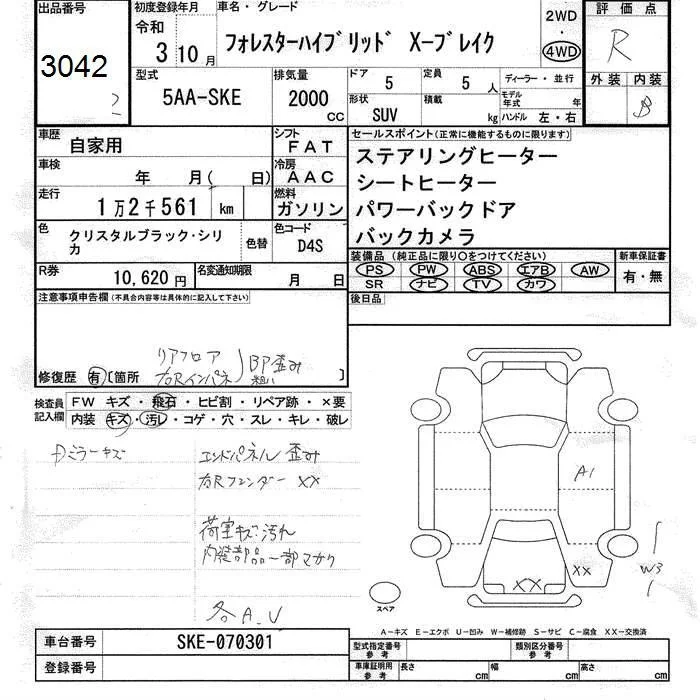 出品番号
3042
初度登録年月
令和
3 10月
車名・グレード
フォレスターハイブリッド X-ブレイク
2WD
・
4WD
評価点
R
外装 内装
B
型式
5AA-SKE
排気量
2000
CC
ドア
5
定員
5人
形状
SUV
積載
kg
ディーラー・並行
モデル年式 年
ハンドル 左・右
車歴
自家用
シフト
FAT
車検
年 月( 日)
冷房
AAC
走行
1万2千561 km
燃料
ガソリン
色
クリスタルブラック・シリカ
色替
色コード
D4S
R券
10,620円
名変通知期限
月 日
セールスポイント(正常に機能するものに限ります)
ステアリングヒーター
シートヒーター
パワーバックドア
バックカメラ
装備品 (純正品に限り○をつけてください)
PS PW ABS エアB AW
SR ナビ TV カワ
新車保証書
有・無
後日品
注意事項申告欄(不具合内容等は具体的に記入して下さい)
修復歴 有 [箇所
リアフロア
右Rインパネ
BP歪み
粗い
]
検査員
記入欄
FW キズ・飛石・ヒビ割・リペア跡・×要
内装 キズ・汚レ・コゲ・穴・スレ・キレ・破レ
ミラーキズ
エンドパネル 歪み
右Rフェンダー XX
荷室キズ・汚れ
内装部品一部
各A.U
A1
XX
XX
W3
スペア
A-キズ E-エクボ U-凹み W-補修跡 S-サビ C-腐食 XX-交換済
車台番号
SKE-070301
登録番号
型式指定番号
参考
類別区分番号
参考
車庫証明用
参考
長さ cm
幅 cm
高さ cm